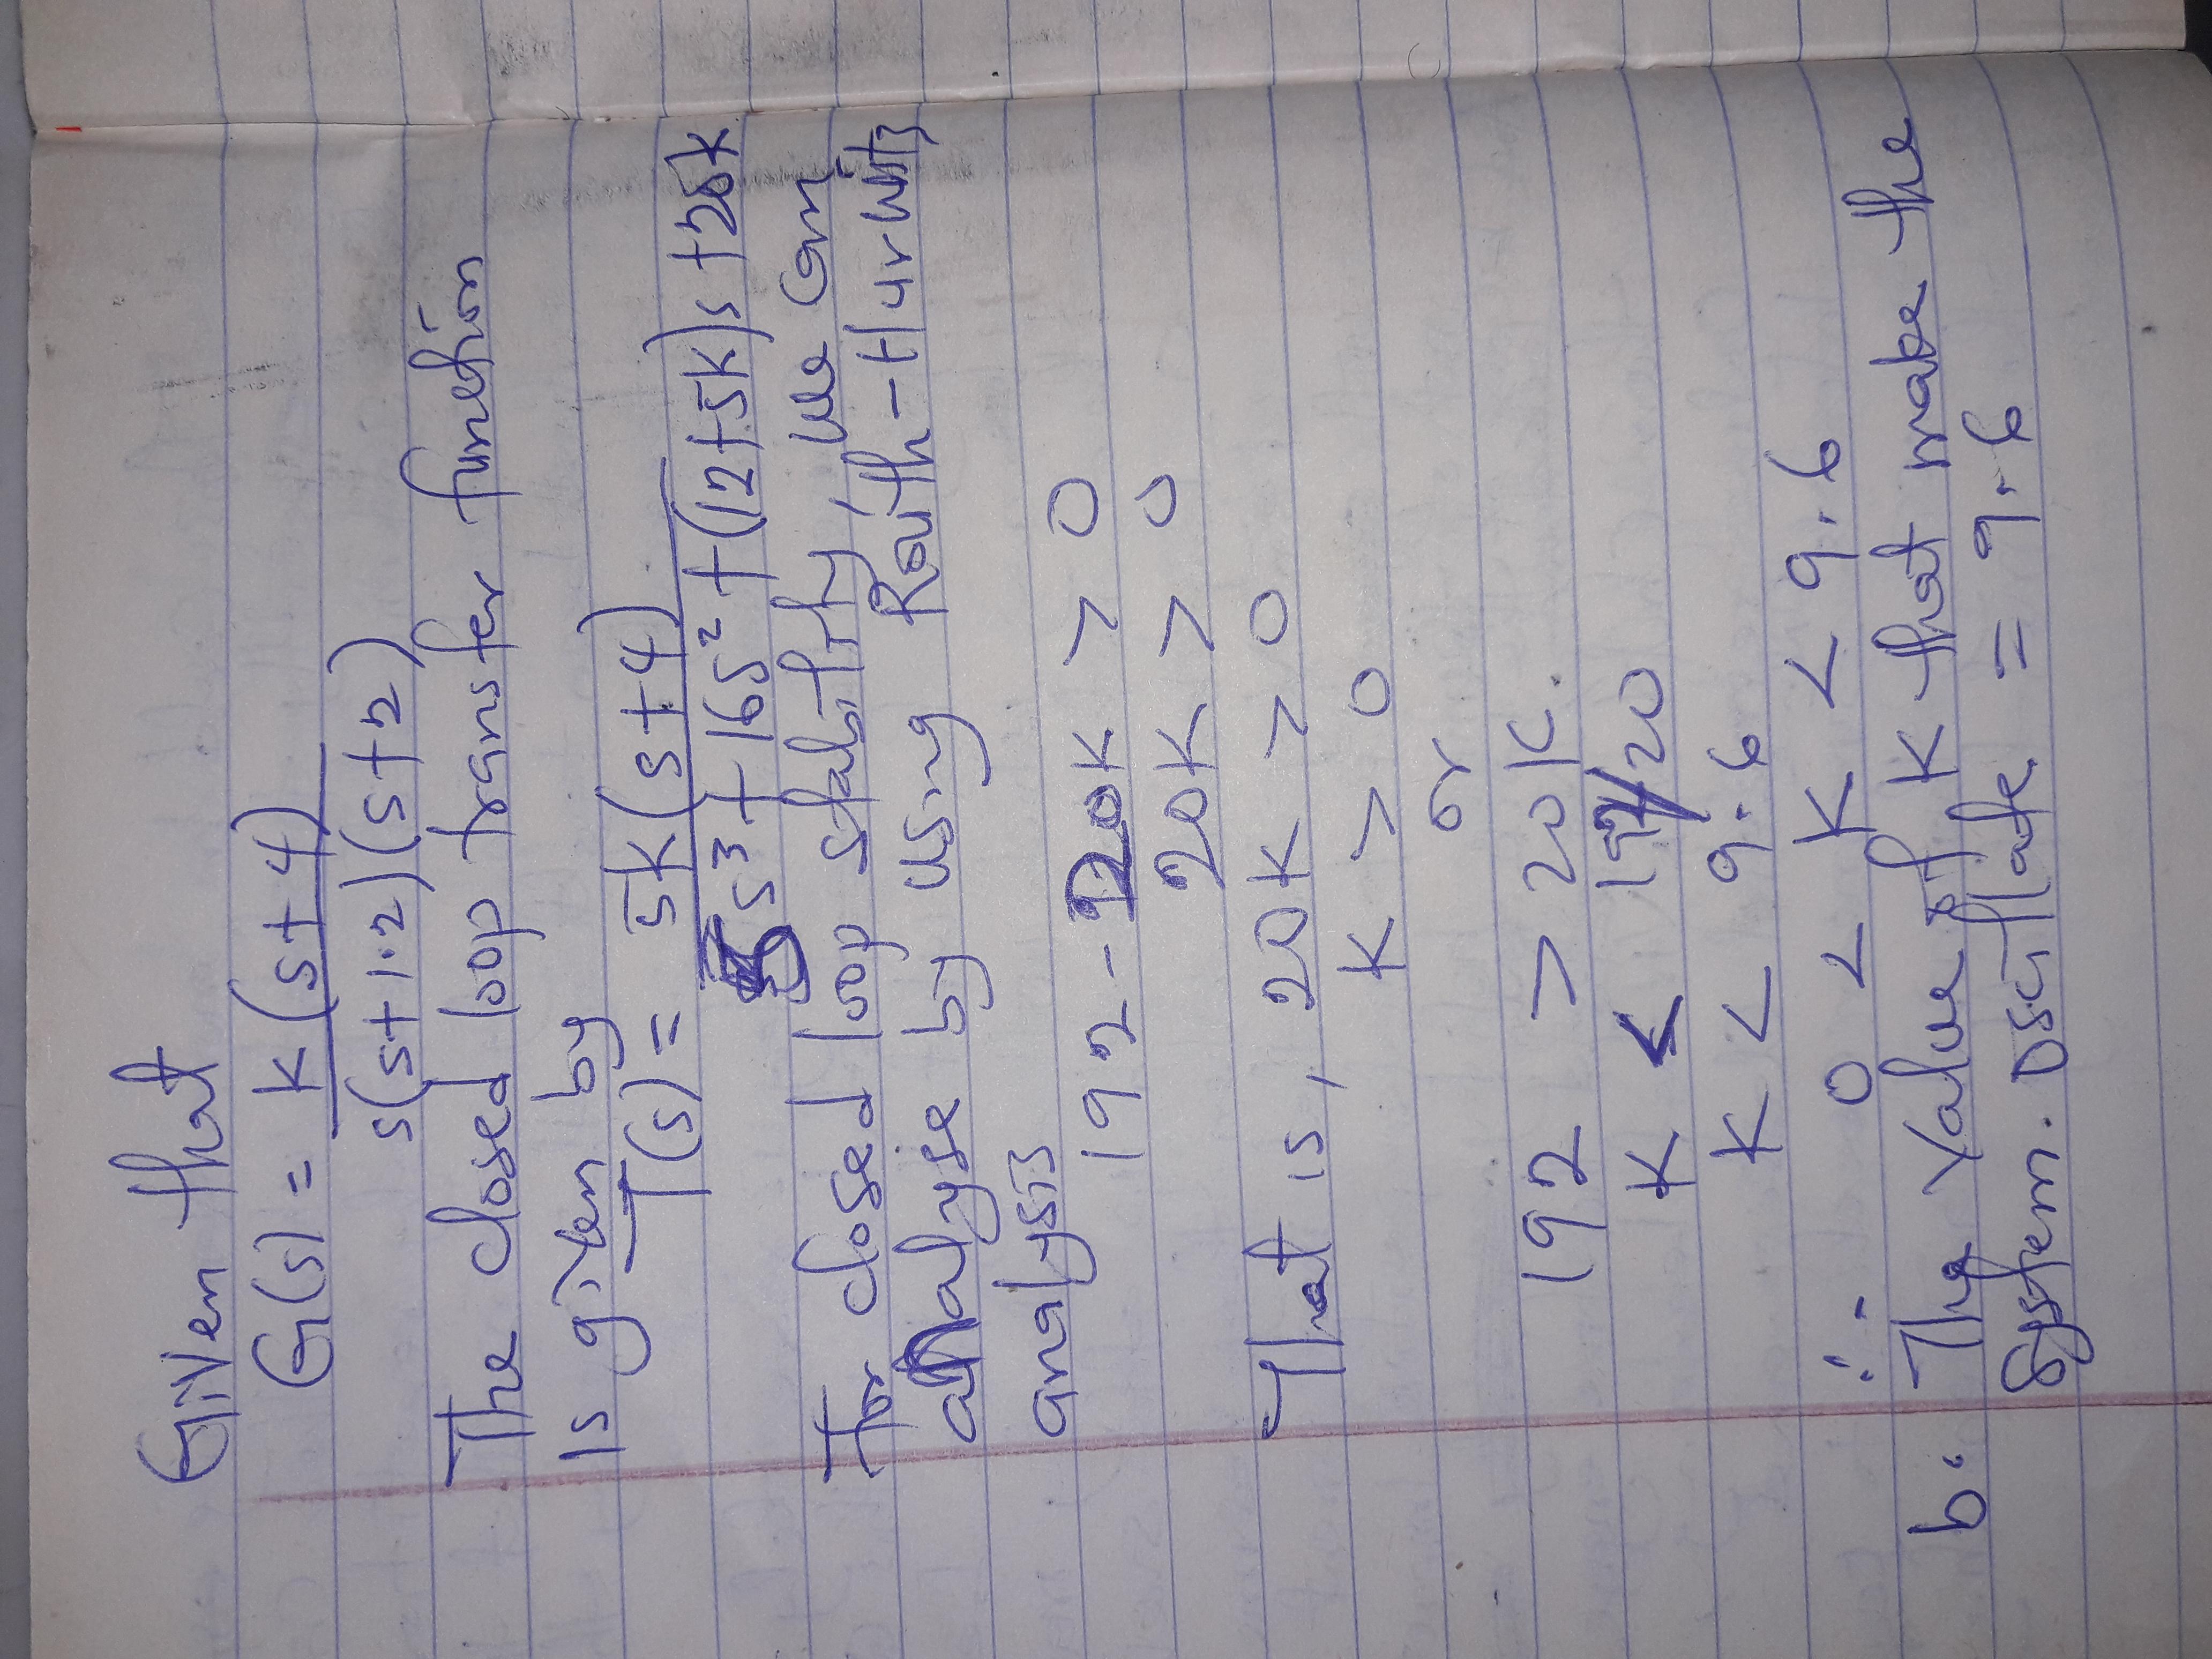 Given that
G(s) = K(s+4)
s(s+1.2)(s+2)
The closed loop transfer function
is given by
T(s) = 5K(s+4)
5s³ + 16s² + (12+5K)s + 20K
For closed loop stability, we can
analyse by using Routh-Hurwitz
analysis
192 - 20K > 0
20K > 0
That is, 20K > 0
K > 0
or
192 > 20K.
K < 192/20
K < 9.6
∴ 0 < K < 9.6
b. The value of K that make the
System. Oscillate = 9.6